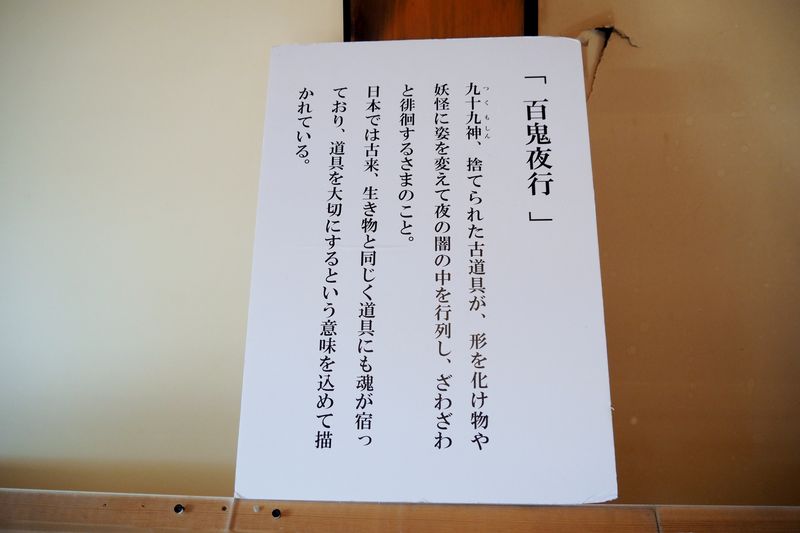 「百鬼夜行」
九十九神、捨てられた古道具が、形を化け物や
妖怪に姿を変えて夜の闇の中を行列し、ざわざわ
と徘徊するさまのこと。
日本では古来、生き物と同じく道具にも魂が宿っ
ており、道具を大切にするという意味を込めて描
かれている。
つくもしん